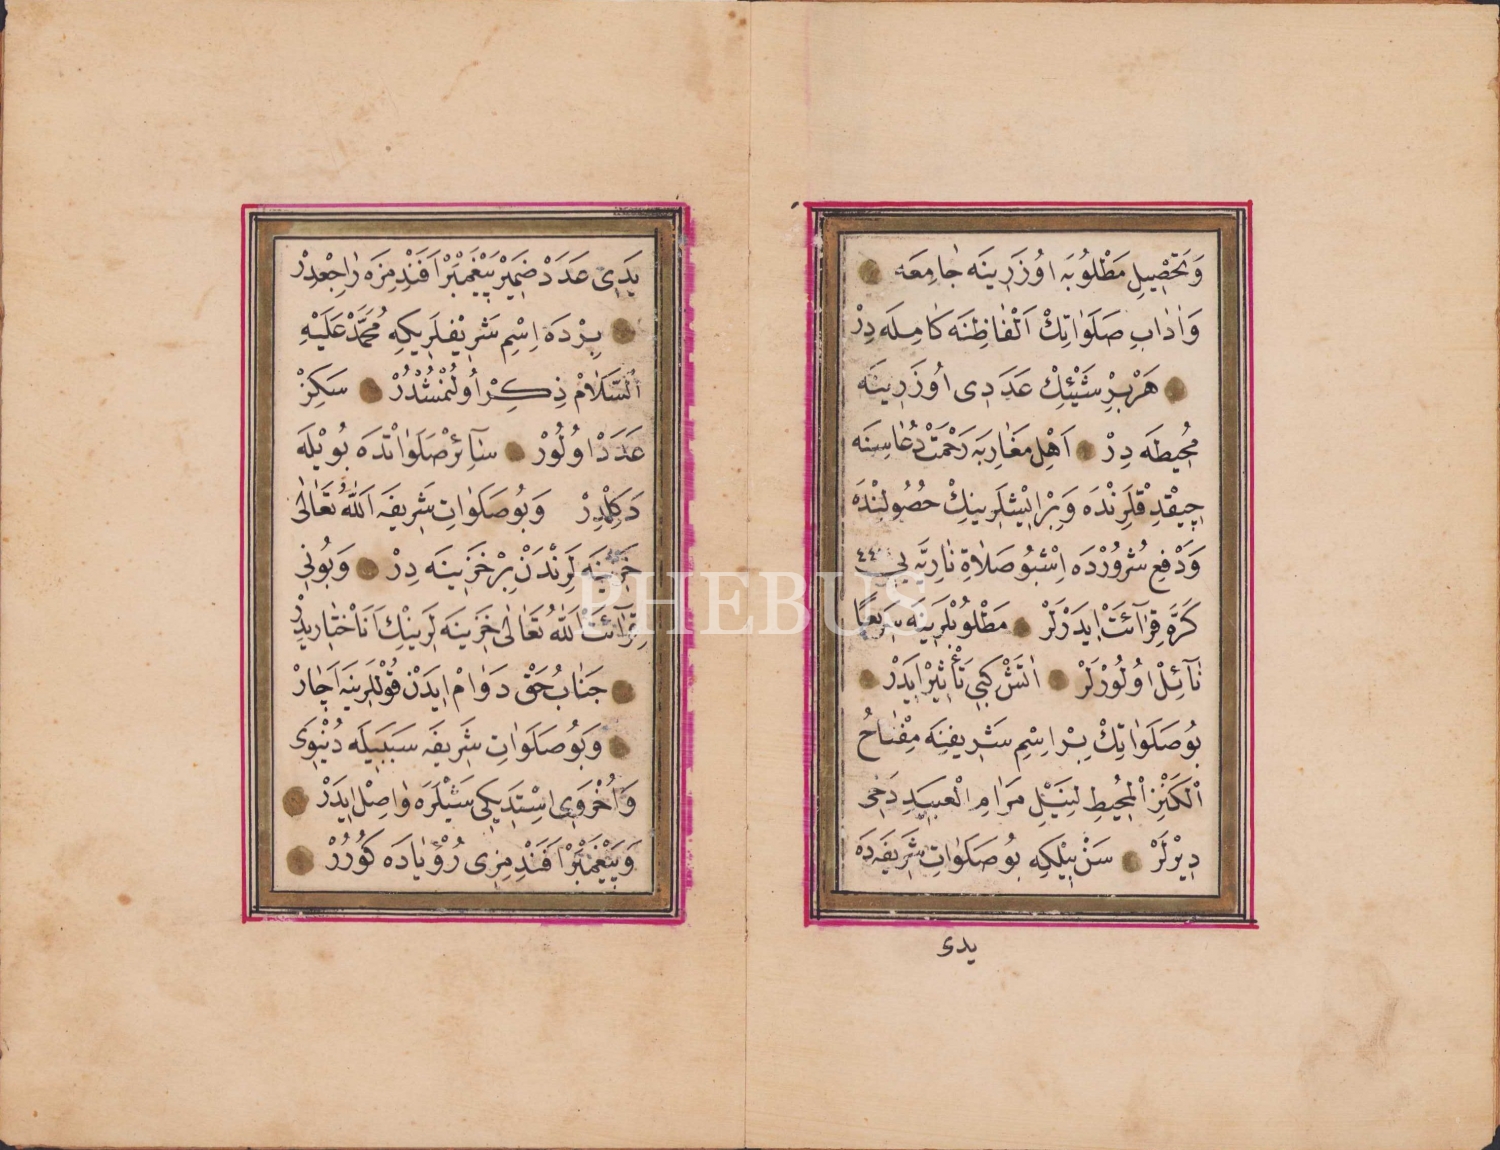 وَتَحْصِيلِ مَطْلُوبَه اوُزَرِينَه جَامِعَه
وَاٰدَابِ صَلَوَاتِكْ اَلْفَاظِنَه كَامِلَه دِرْ
هَرْبِرْ شَيْئِكْ عَدَدِى اوُزَرِينَه
مُحِيطَه دِرْ اَهْلِ مَغَارِبَه رَحْمَتْ دُعَاسِنَه
چِيقْدِقْلَرِنْدَه وَبِرْ اِيْشْلَرِينِكْ حُصُولِنْدَه
وَدَفْعِ شُرُورْدَه اِشْبُو صَلَاةِ نَارِيَّه يِى ٤٤٤٤
كَرَّه قِرَآئَتْ اِيدَرْلَرْ مَطْلُوبْلَرِينَه سَرِيعًا
نَآئِلْ اوُلُورْلَرْ اٰتَشْ كَبِى تَأْثِيرْ اِيدَرْ
بُو صَلَوَاتِكْ بِرْ اِسْمِ شَرِيفِنَه مِفْتَاحُ
الْكَنْزِ الْمُحِيطِ لِنَيْلِ مَرَامِ الْعَبِيدِ دَخِى
دِيرْلَرْ سَنْ بِيلْكِه بُو صَلَوَاتِ شَرِيفَه دَه
يدى
يَدِى عَدَدْ ضَمِيرْ پَيْغَمْبَرْ اَفَنْدِمِزَه رَاجِعْدِرْ
بِرْدَه اِسْمِ شَرِيفْلَرِيكِه مُحَمَّدْ عَلَيْهِ
السَّلَامْ ذِكِرْ اُولُنْمُشْدُرْ سَكِزْ
عَدَدْ اوُلُورْ سَآئِرْ صَلَوَاتْدَه بُويْلَه
دَكِلْدِرْ وَبُو صَلَوَاتِ شَرِيفَه اَللّٰهُ تَعَالٰى
خَزِينَه لَرِنْدَنْ بِرْ خَزِينَه دِرْ وَبُونِى
قِرَآئَتْ اَللّٰهُ تَعَالٰى خَزِينَه لَرِينِكْ اَنَاخْتَارِيدِرْ
جَنَابُ حَقْ دَوَامْ اِيدَنْ قُوللَرِينَه اَچَارْ
وَبُو صَلَوَاتِ شَرِيفَه سَبَبِيلَه دُنْيَوِى
وَاُخْرَوِى اِسْتَدِيكِى شَيْلَرَه وَاصِلْ اِيدَرْ
وَپَيْغَمْبَرْ اَفَنْدِمِزِى رُؤْيَادَه كَورُرْ
PHEBUS